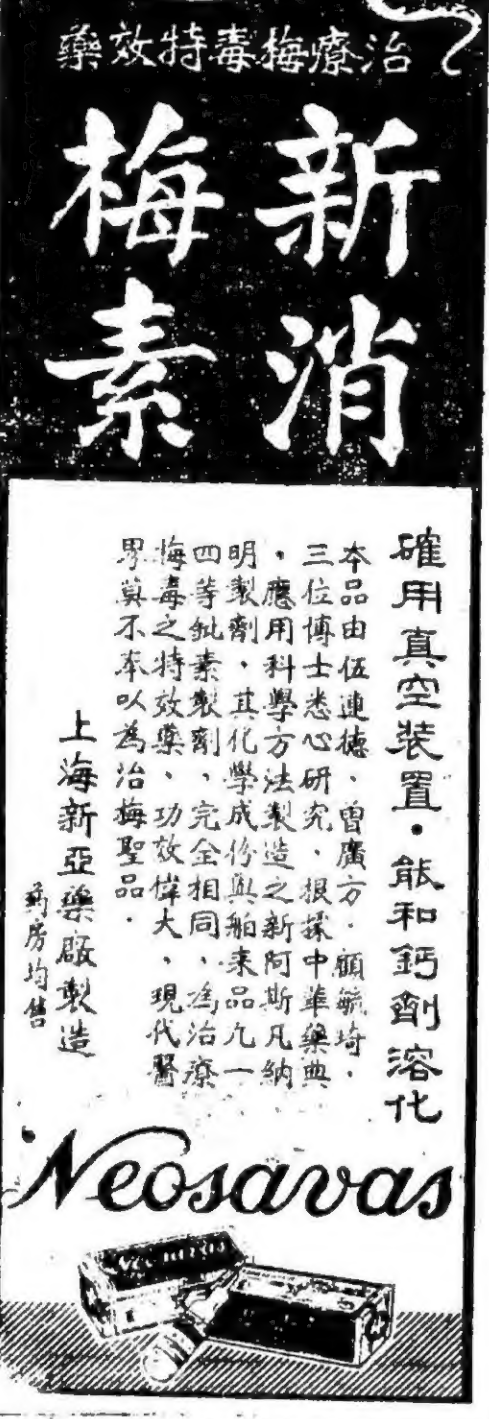 治療梅毒特效藥
新消
梅素
確用真空裝置·能和鈣劑溶化
本品由伍連德、曾廣方、顧毓琦、
三位博士悉心研究、根據中華藥典
，應用科學方法製造之新阿斯凡納
明製劑，其化學成份與舶來品九一
四等砒素製劑、完全相同、為治療
梅毒之特效藥、功效偉大、現代醫
界莫不奉以為治梅聖品．
上海新亞藥廠製造
藥房均售
Neosavas